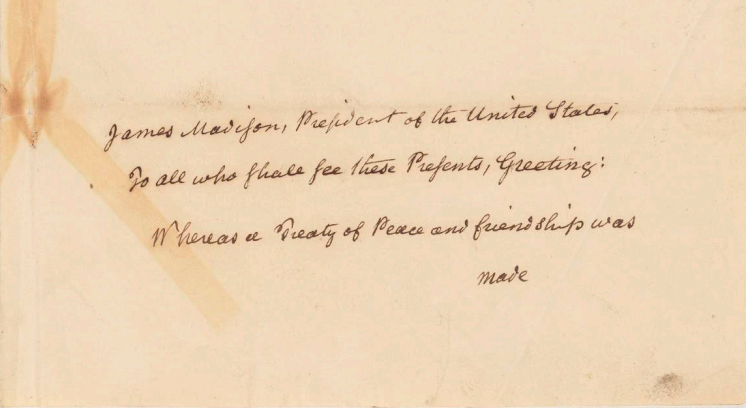 James Madiſon, Preſident of the United States,
To all who ſhall ſee these Preſents, Greeting:
Whereas a Treaty of Peace and friendship was
made